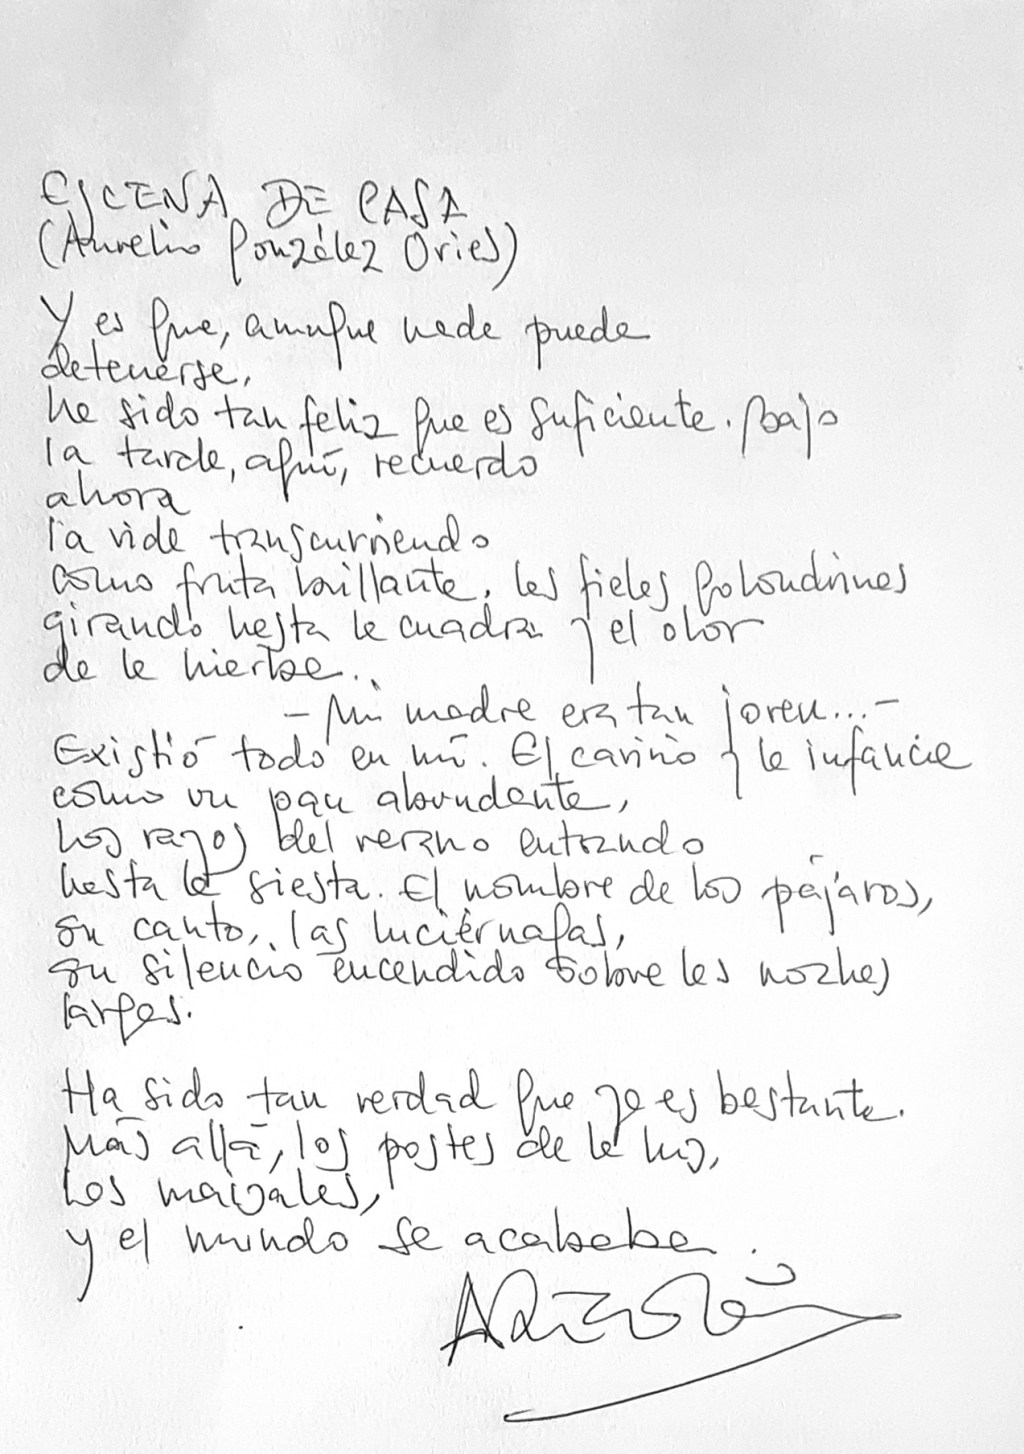 ESCENA DE CASA
(Aurelio González Ovies)
Y es que, aunque nada puede
detenerse,
he sido tan feliz que es suficiente. Bajo
la tarde, aquí, recuerdo
ahora
la vida transcurriendo
como fruta brillante, las fieles golondrinas
girando hasta la cuadra y el olor
de la hierba..
- Mi madre era tan joven...-
Existió todo en mí. El cariño y la infancia
como un pan abundante,
los rayos del verano entrando
hasta la siesta. El nombre de los pájaros,
su canto, las luciérnagas,
su silencio encendido sobre las noches
largas.
Ha sido tan verdad que ya es bastante.
Más allá, los postes de la luz,
los maizales,
y el mundo se acababa.